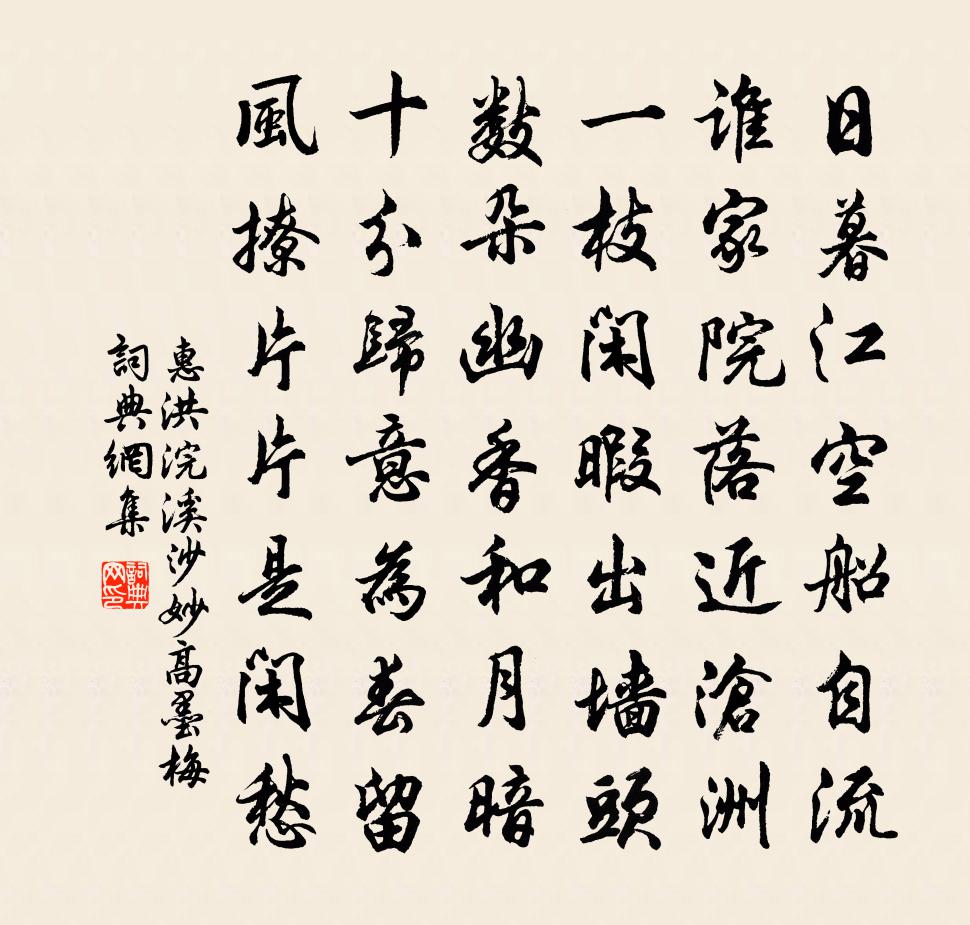 日暮江空船自流
誰家院落近滄洲
一枝閑暇出墻頭
數朵幽香和月暗
十分歸意為春留
風撩片片是閑愁
惠洪浣溪沙妙高墨梅
詞典網集
詞典网印